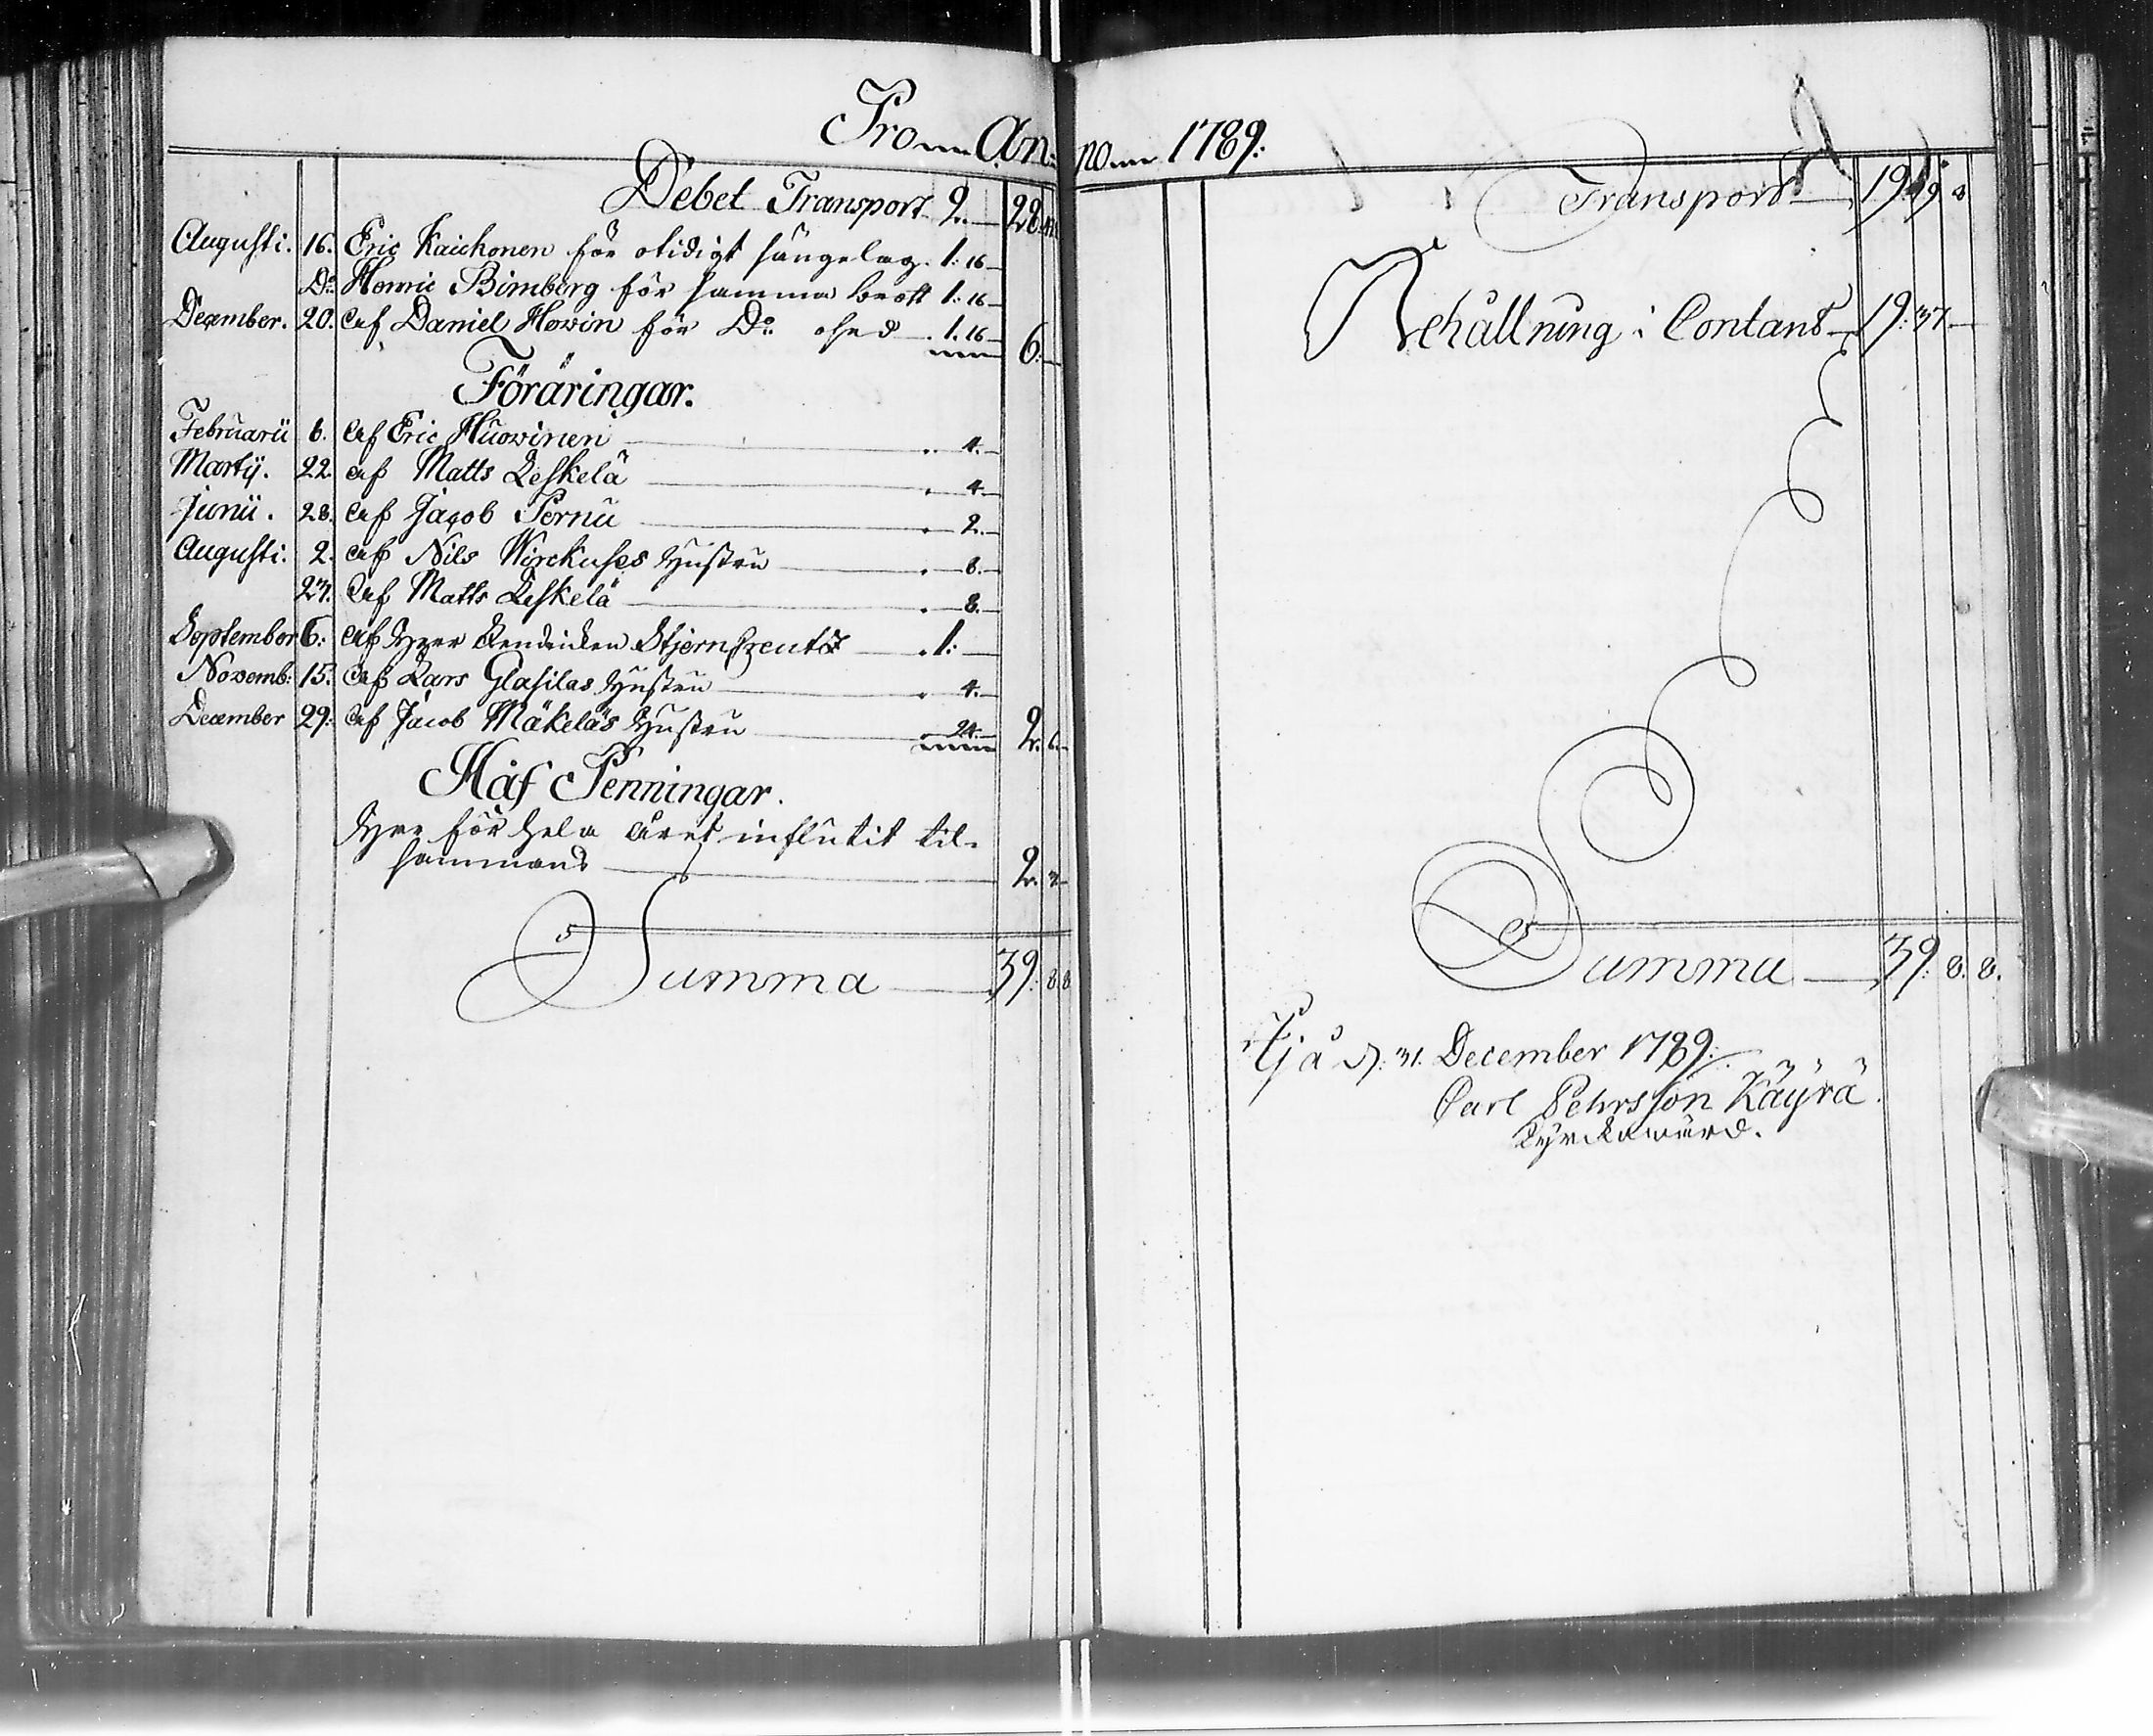 Pro Anno 1789:
Debet Transport 2.— 28.
Augusti. 16. Eric Kaickonen för otidigt sängelag. 1: 16—
Do Henric Bimberg för samma brott 1: 16—
December. 20. af Daniel Howin för Do 1. 16— 6:—
Föräringar.
Februarii 6. af Eric Huovinen 4.—
Martij. 22. af Matts Leskelä 4—
Junii. 28. af Jacob Pernu 2.—
Augusti. 2. af Nils Wirckuses Hustru 8.—
23. af Matts Leskelä 8.—
September 6: af Herr Stjerncreutz 1:—
Novemb: 15. af Lars Glasilas Hustru 4.—
December 29: af Jacob Mäkeläs Hustru 24.— 2. 6.—
Håf Penningar.
Har för hela året influtit til-
sammans 2. 3—
Summa 39: 8. 8
Transport 19. 19 8
Behållning i Contant 19: 37—
Summa 39: 8. 8.
Ijå d. 31. December 1789:
Carl Pehrsson Käyrä.
Kyrckowärd.